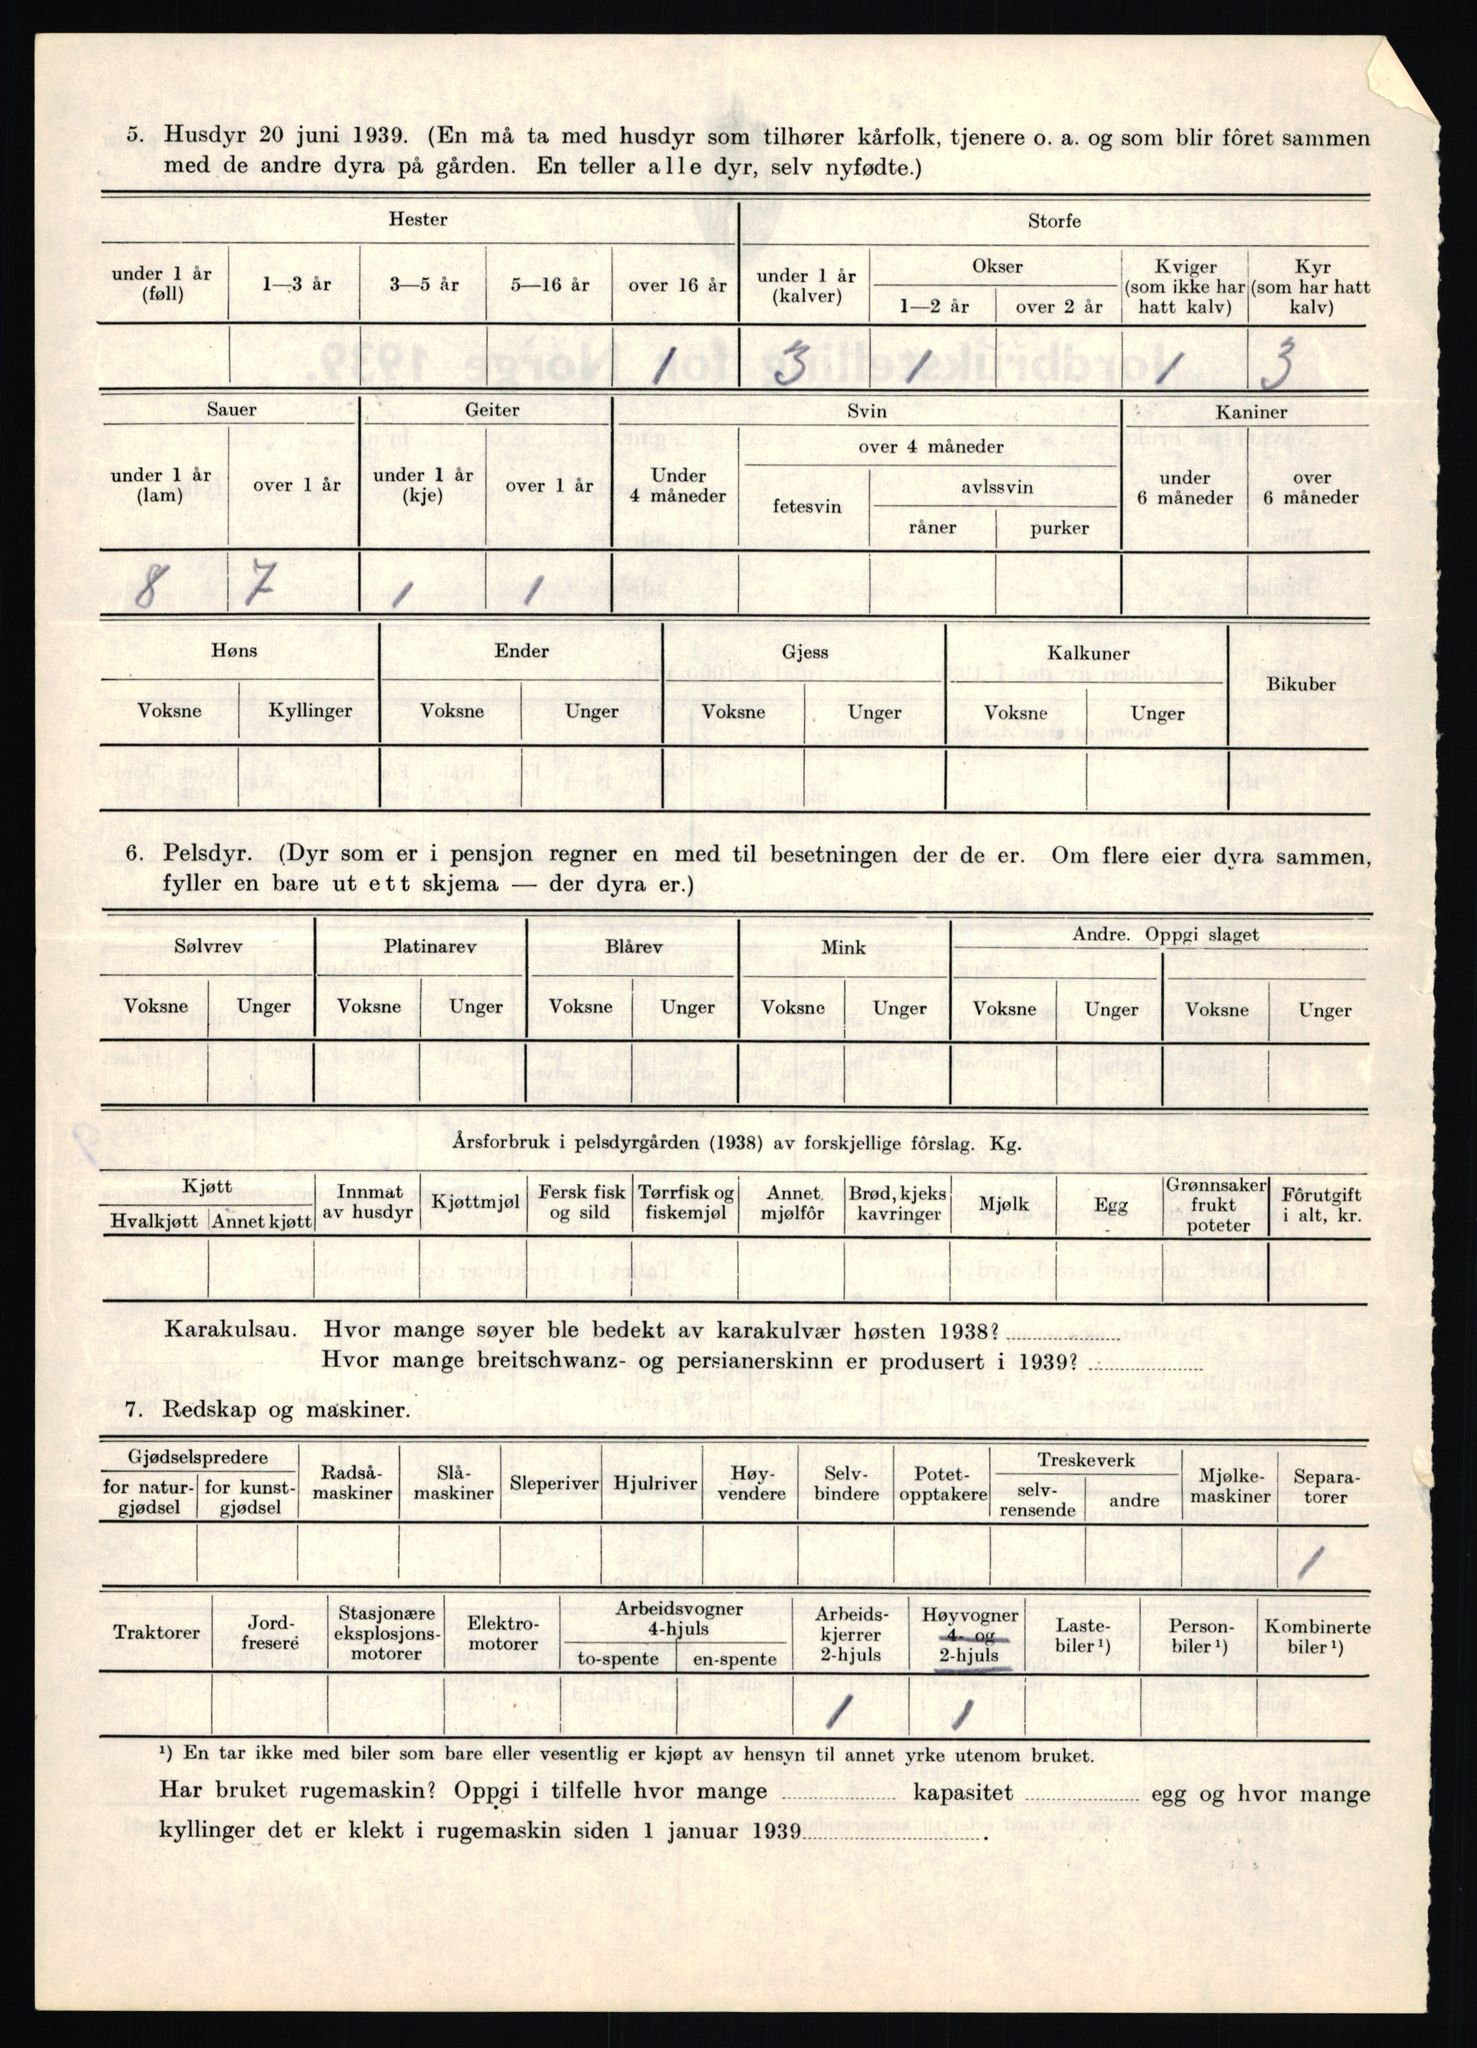 5. Husdyr 20 juni 1939. (En må ta med husdyr som tilhører kårfolk, tjenere o. a. og som blir fôret sammen
med de andre dyra på gården. En teller alle dyr, selv nyfødte.)
Hester Storfe
under 1 år (føll) 1—3 år 3—5 år 5—16 år over 16 år under 1 år (kalver) Okser 1—2 år over 2 år Kviger (som ikke har hatt kalv) Kyr (som har hatt kalv)
1 3 1 1 3
Sauer Geiter Svin Kaniner
over 4 måneder
under 1 år (lam) over 1 år under 1 år (kje) over 1 år Under 4 måneder fetesvin avlssvin råner purker under 6 måneder over 6 måneder
8 7 1 1
Høns Ender Gjess Kalkuner Bikuber
Voksne Kyllinger Voksne Unger Voksne Unger Voksne Unger
6. Pelsdyr. (Dyr som er i pensjon regner en med til besetningen der de er. Om flere eier dyra sammen,
fyller en bare ut ett skjema — der dyra er.)
Sølvrev Platinarev Blårev Mink Andre. Oppgi slaget
Voksne Unger Voksne Unger Voksne Unger Voksne Unger Voksne Unger Voksne Unger
Årsforbruk i pelsdyrgården (1938) av forskjellige fôrslag. Kg.
Kjøtt Hvalkjøtt Annet kjøtt Innmat av husdyr Kjøttmjøl Fersk fisk og sild Tørrfisk og fiskemjøl Annet mjølfôr Brød, kjeks kavringer Mjølk Egg Grønnsaker frukt poteter Fôrutgift i alt, kr.
Karakulsau. Hvor mange søyer ble bedekt av karakulvær høsten 1938?
Hvor mange breitschwanz- og persianerskinn er produsert i 1939?
7. Redskap og maskiner.
Gjødselspredere for naturgjødsel for kunstgjødsel Radsåmaskiner Slåmaskiner Sleperiver Hjulriver Høyvendere Selvbindere Potetopptakere Treskeverk selvrensende andre Mjølkemaskiner Separatorer
1
Traktorer Jordfresere Stasjonære eksplosjonsmotorer Elektromotorer Arbeidsvogner 4-hjuls to-spente en-spente Arbeidskjerrer 2-hjuls Høyvogner 4- og 2-hjuls Lastebiler¹) Personbiler¹) Kombinerte biler¹)
1 1
¹) En tar ikke med biler som bare eller vesentlig er kjøpt av hensyn til annet yrke utenom bruket.
Har bruket rugemaskin? Oppgi i tilfelle hvor mange kapasitet egg og hvor mange
kyllinger det er klekt i rugemaskin siden 1 januar 1939 .